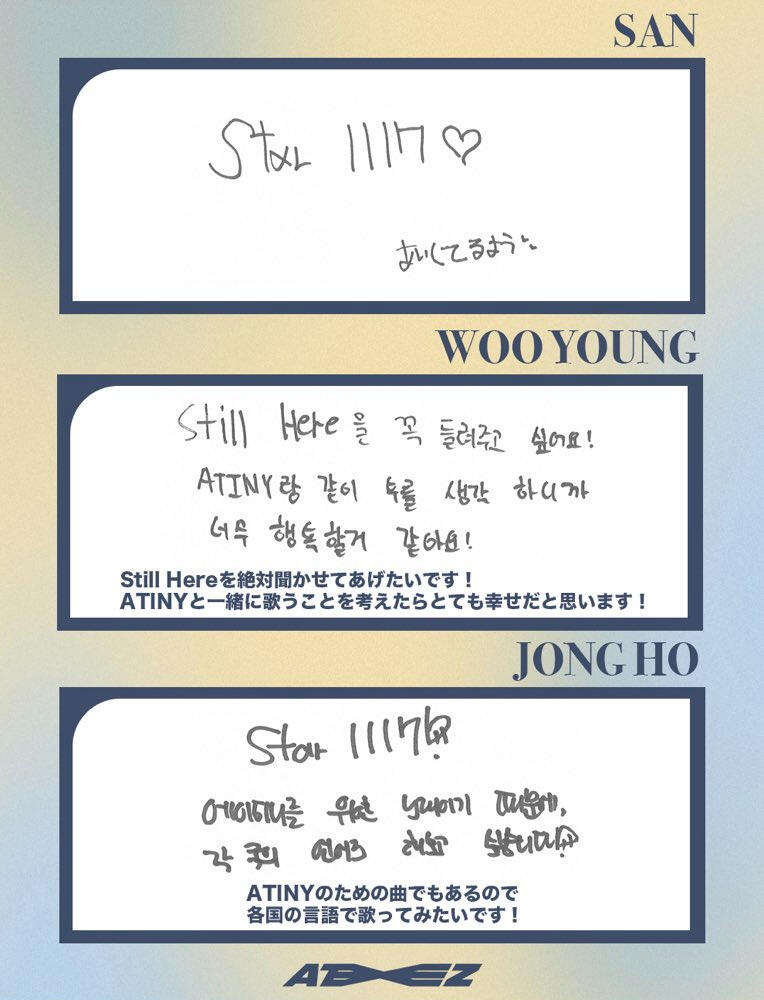 SAN
Star 1117♡
あいしてるよう
WOOYOUNG
Still Here을 꼭 들려주고 싶어요!
ATINY랑 같이 부를 생각 하니까
너무 행복할거 같아요!
Still Hereを絶対聞かせてあげたいです!
ATINYと一緒に歌うことを考えたらとても幸せだと思います!
JONGHO
Star 1117!
에이티니를 위한 노래이기 때문에,
각 국의 언어로 해보고 싶습니다!
ATINYのための曲でもあるので
各国の言語で歌ってみたいです!
ATEEZ